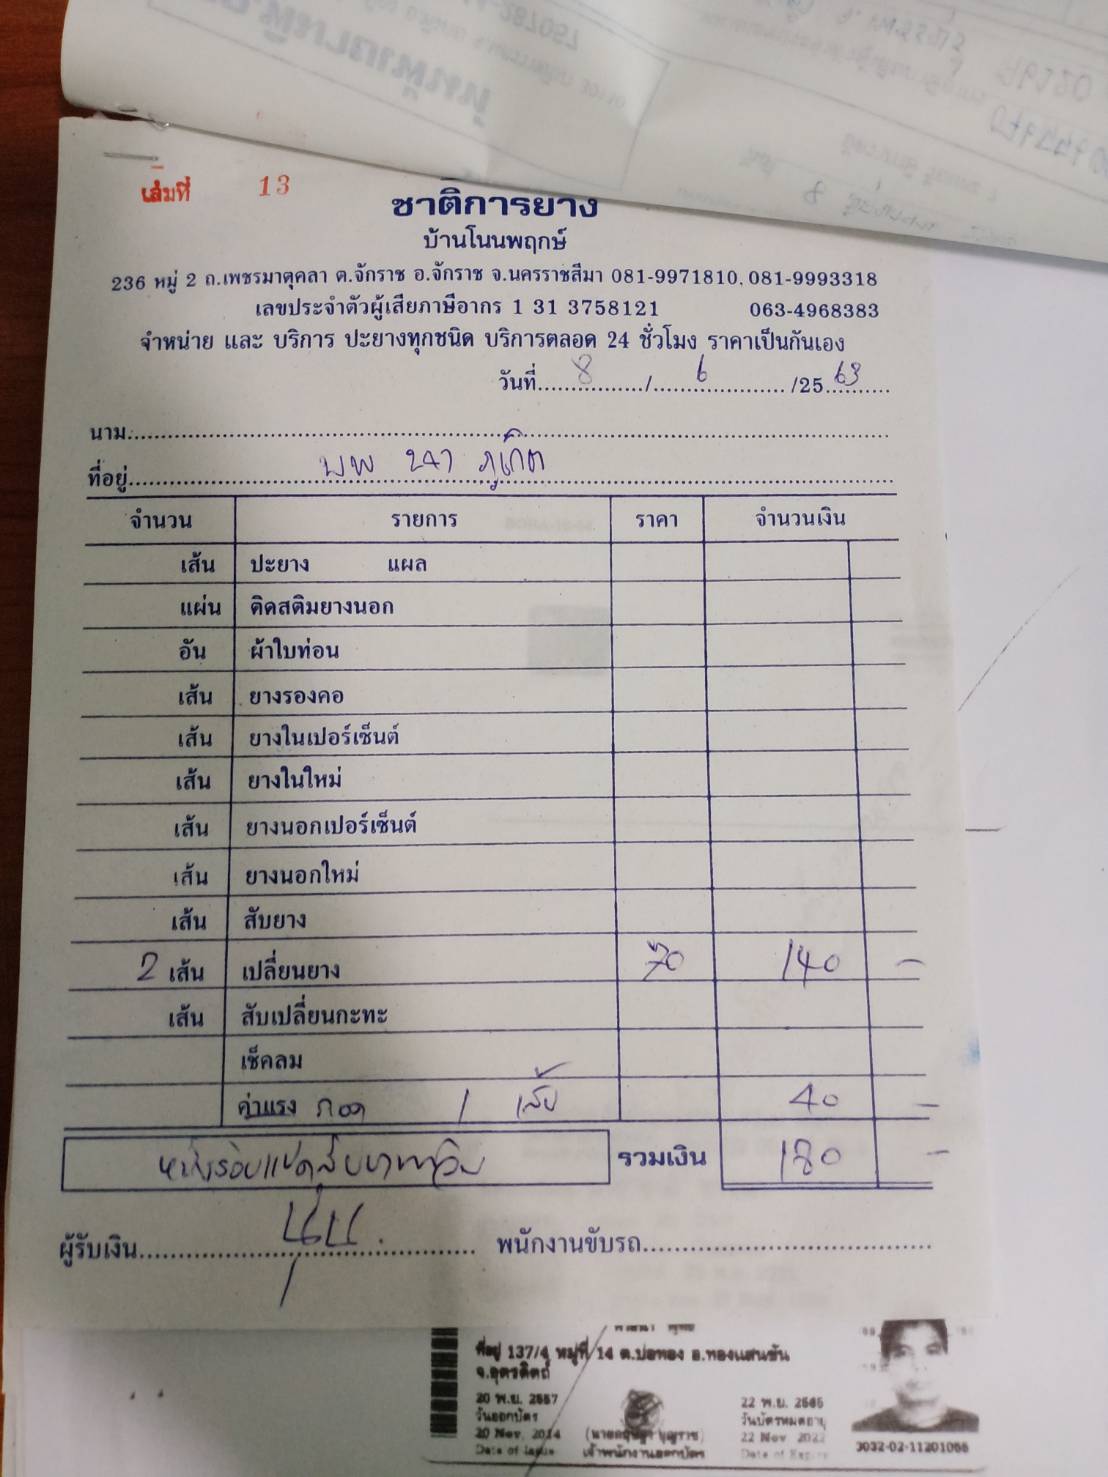 เล่มที่ 13
ชาติการยาง
บ้านโนนพฤกษ์
236 หมู่ 2 ถ.เพชรมาตุคลา ต.จักราช อ.จักราช จ.นครราชสีมา 081-9971810, 081-9993318
เลขประจำตัวผู้เสียภาษีอากร 1 31 3758121 063-4968383
จำหน่าย และ บริการ ปะยางทุกชนิด บริการตลอด 24 ชั่วโมง ราคาเป็นกันเอง
วันที่ 8 / 6 /25 63
นาม
ที่อยู่ 247 ภูเก็ต
จำนวน รายการ ราคา จำนวนเงิน
เส้น ปะยาง แผล
แผ่น ติดสติมยางนอก
อัน ผ้าใบท่อน
เส้น ยางรองคอ
เส้น ยางในเปอร์เซ็นต์
เส้น ยางในใหม่
เส้น ยางนอกเปอร์เซ็นต์
เส้น ยางนอกใหม่
เส้น สับยาง
2 เส้น เปลี่ยนยาง 70 140 -
เส้น สับเปลี่ยนกะทะ
เช็คลม
ค่าแรง ถอด 1 เส้น 40 -
หนึ่งร้อยแปดสิบบาทถ้วน รวมเงิน 180 -
ผู้รับเงิน พนักงานขับรถ
ที่อยู่ 137/4 หมู่ที่ 14 ต.บ่อทอง อ.ทองแสนขัน
จ.อุตรดิตถ์
20 พ.ย. 2557 22 พ.ย. 2565
วันออกบัตร วันบัตรหมดอายุ
20 Nov. 2014 22 Nov. 2022
Date of Issue เจ้าพนักงานออกบัตร Date of Expiry
3032-02-11201066